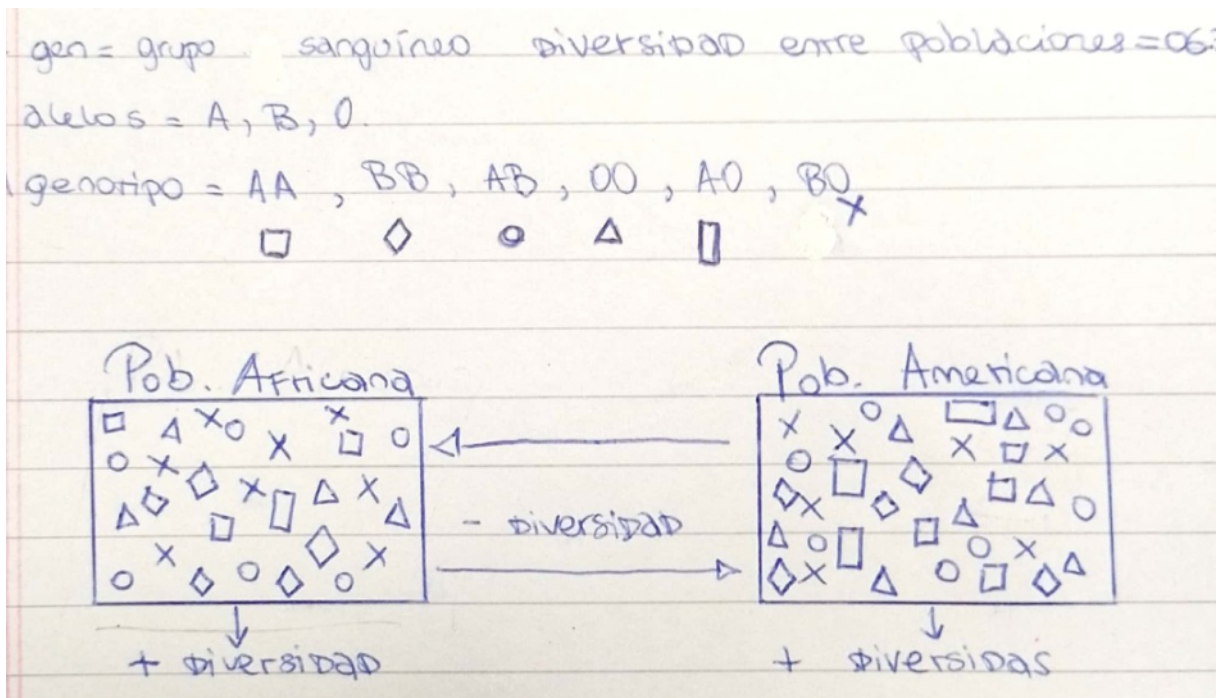 gen = grupo sanguíneo DiversiDAD entre poblaciones = 06
alelos = A, B, O.
genotipo = AA, BB, AB, OO, AO, BO
Pob. Africana
Pob. Americana
- DiversiDAD
+ DiversiDAD
+ DiversiDas